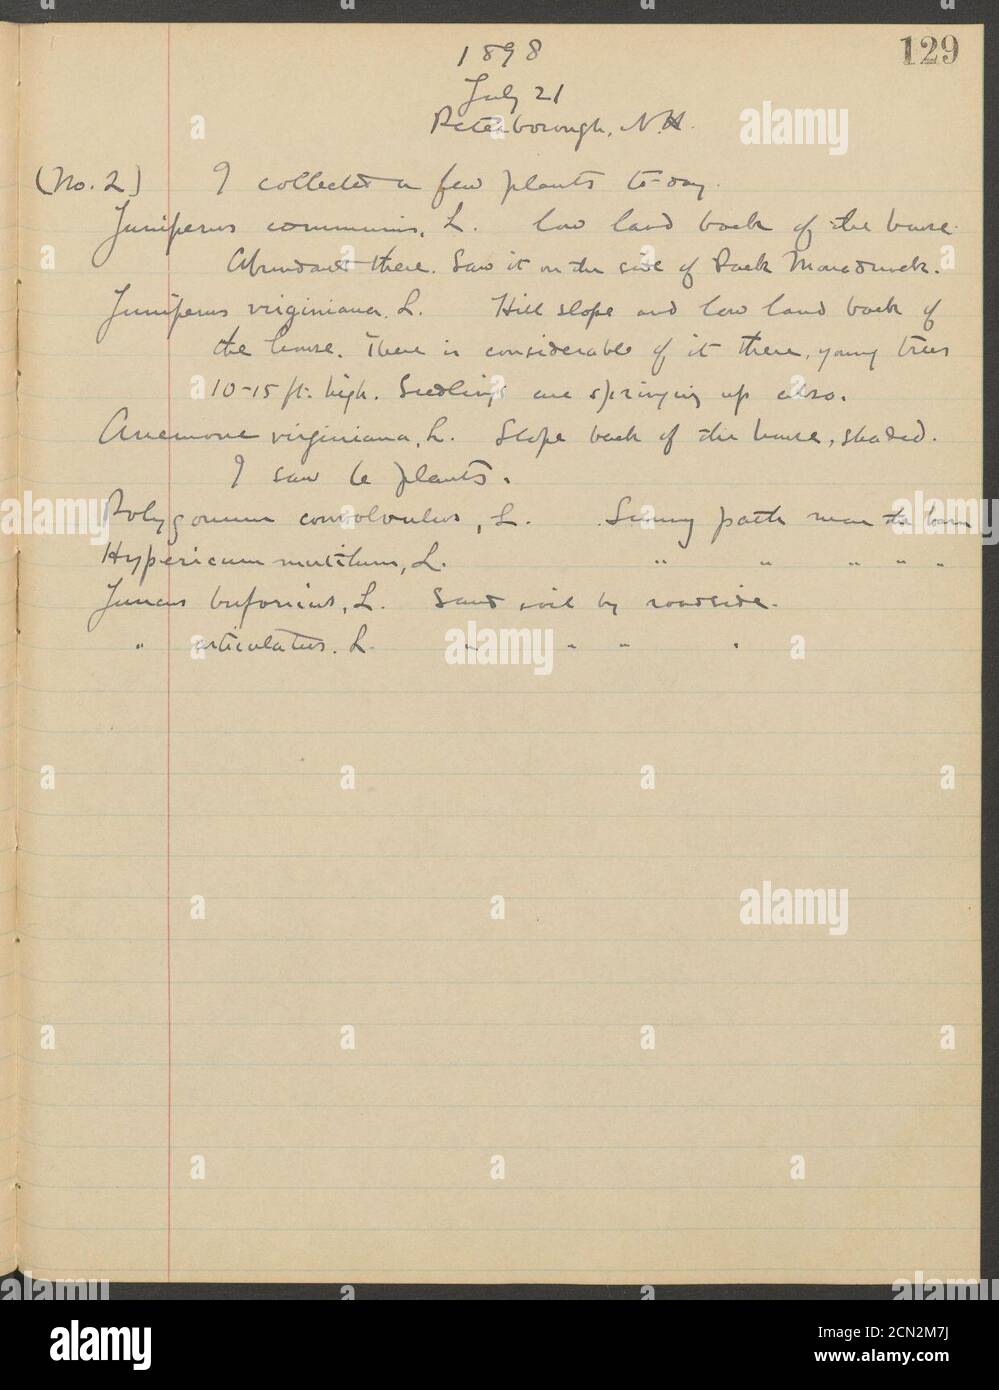 129
1898
July 21
Peterborough, N.H.
(No. 2) I collected a few plants to-day.
Juniperus communis, L. Low land back of the house.
Abundant there. Saw it on the side of Pack Monadnock.
Juniperus virginiana, L. Hill slope and low land back of
the house. There is considerable of it there, young trees
10-15 ft. high. Seedlings are springing up also.
Anemone virginiana, L. Slope back of the house, shaded.
I saw 6 plants.
Polygonum convolvulus, L. Sunny path near the barn
Hypericum mutilum, L. " " " " "
Juncus bufonius, L. Sand soil by roadside.
" articulatus, L. " " " "
alamy
Image ID: 2CN2M7J
www.alamy.com